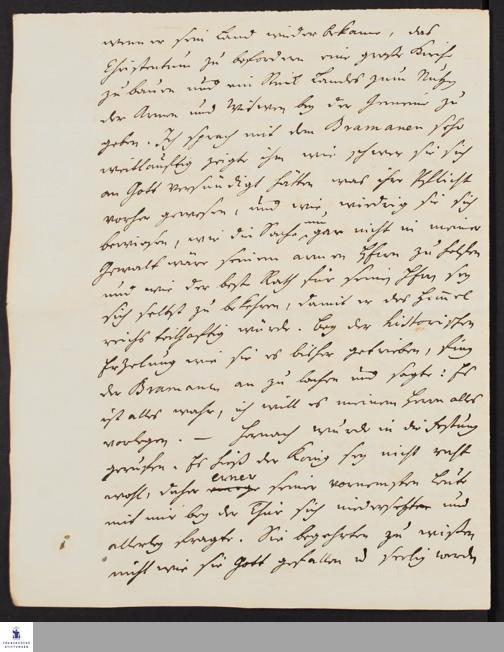 wenn er sein Land wieder bekäme, das
Christentum zu befördern eine große Kirche
zu bauen und ein Stück Landes zum Nutzen
der Armen und Witwen bey der Gemeine zu
geben. Ich sprach mit dem Bramanen sehr
weitläufftig zeigte ihm wie schwer sie sich
an Gott versündigt hätten was ihre Pflicht
vorher gewesen, und wie wiedrig sie sich
bewiesen, wie die Sache nun gar nicht in meiner
Gewalt wäre seinem armen Herrn zu helfen
und wie der beste Rath für seinen Herrn sey
sich selbst zu bekehren, damit er des Himmel
reichs teilhafftig würde. Bey der historischen
Erzelung wie sie es bisher getrieben, fing
der Bramane an zu lachen und sagte: Es
ist alles wahr, ich will es meinem Herrn alles
vorlegen. — Hernach wurde in die Festung
gerufen. Es hieß der König sey nicht recht
wohl, daher einer seiner vornemsten Leute
mit mir bey der Thür sich niedersetzte und
allerley fragte. Sie begehrten zu wissen
nicht wie sie Gott gefallen u seelig werden
FRANCKESCHE
STIFTUNGEN